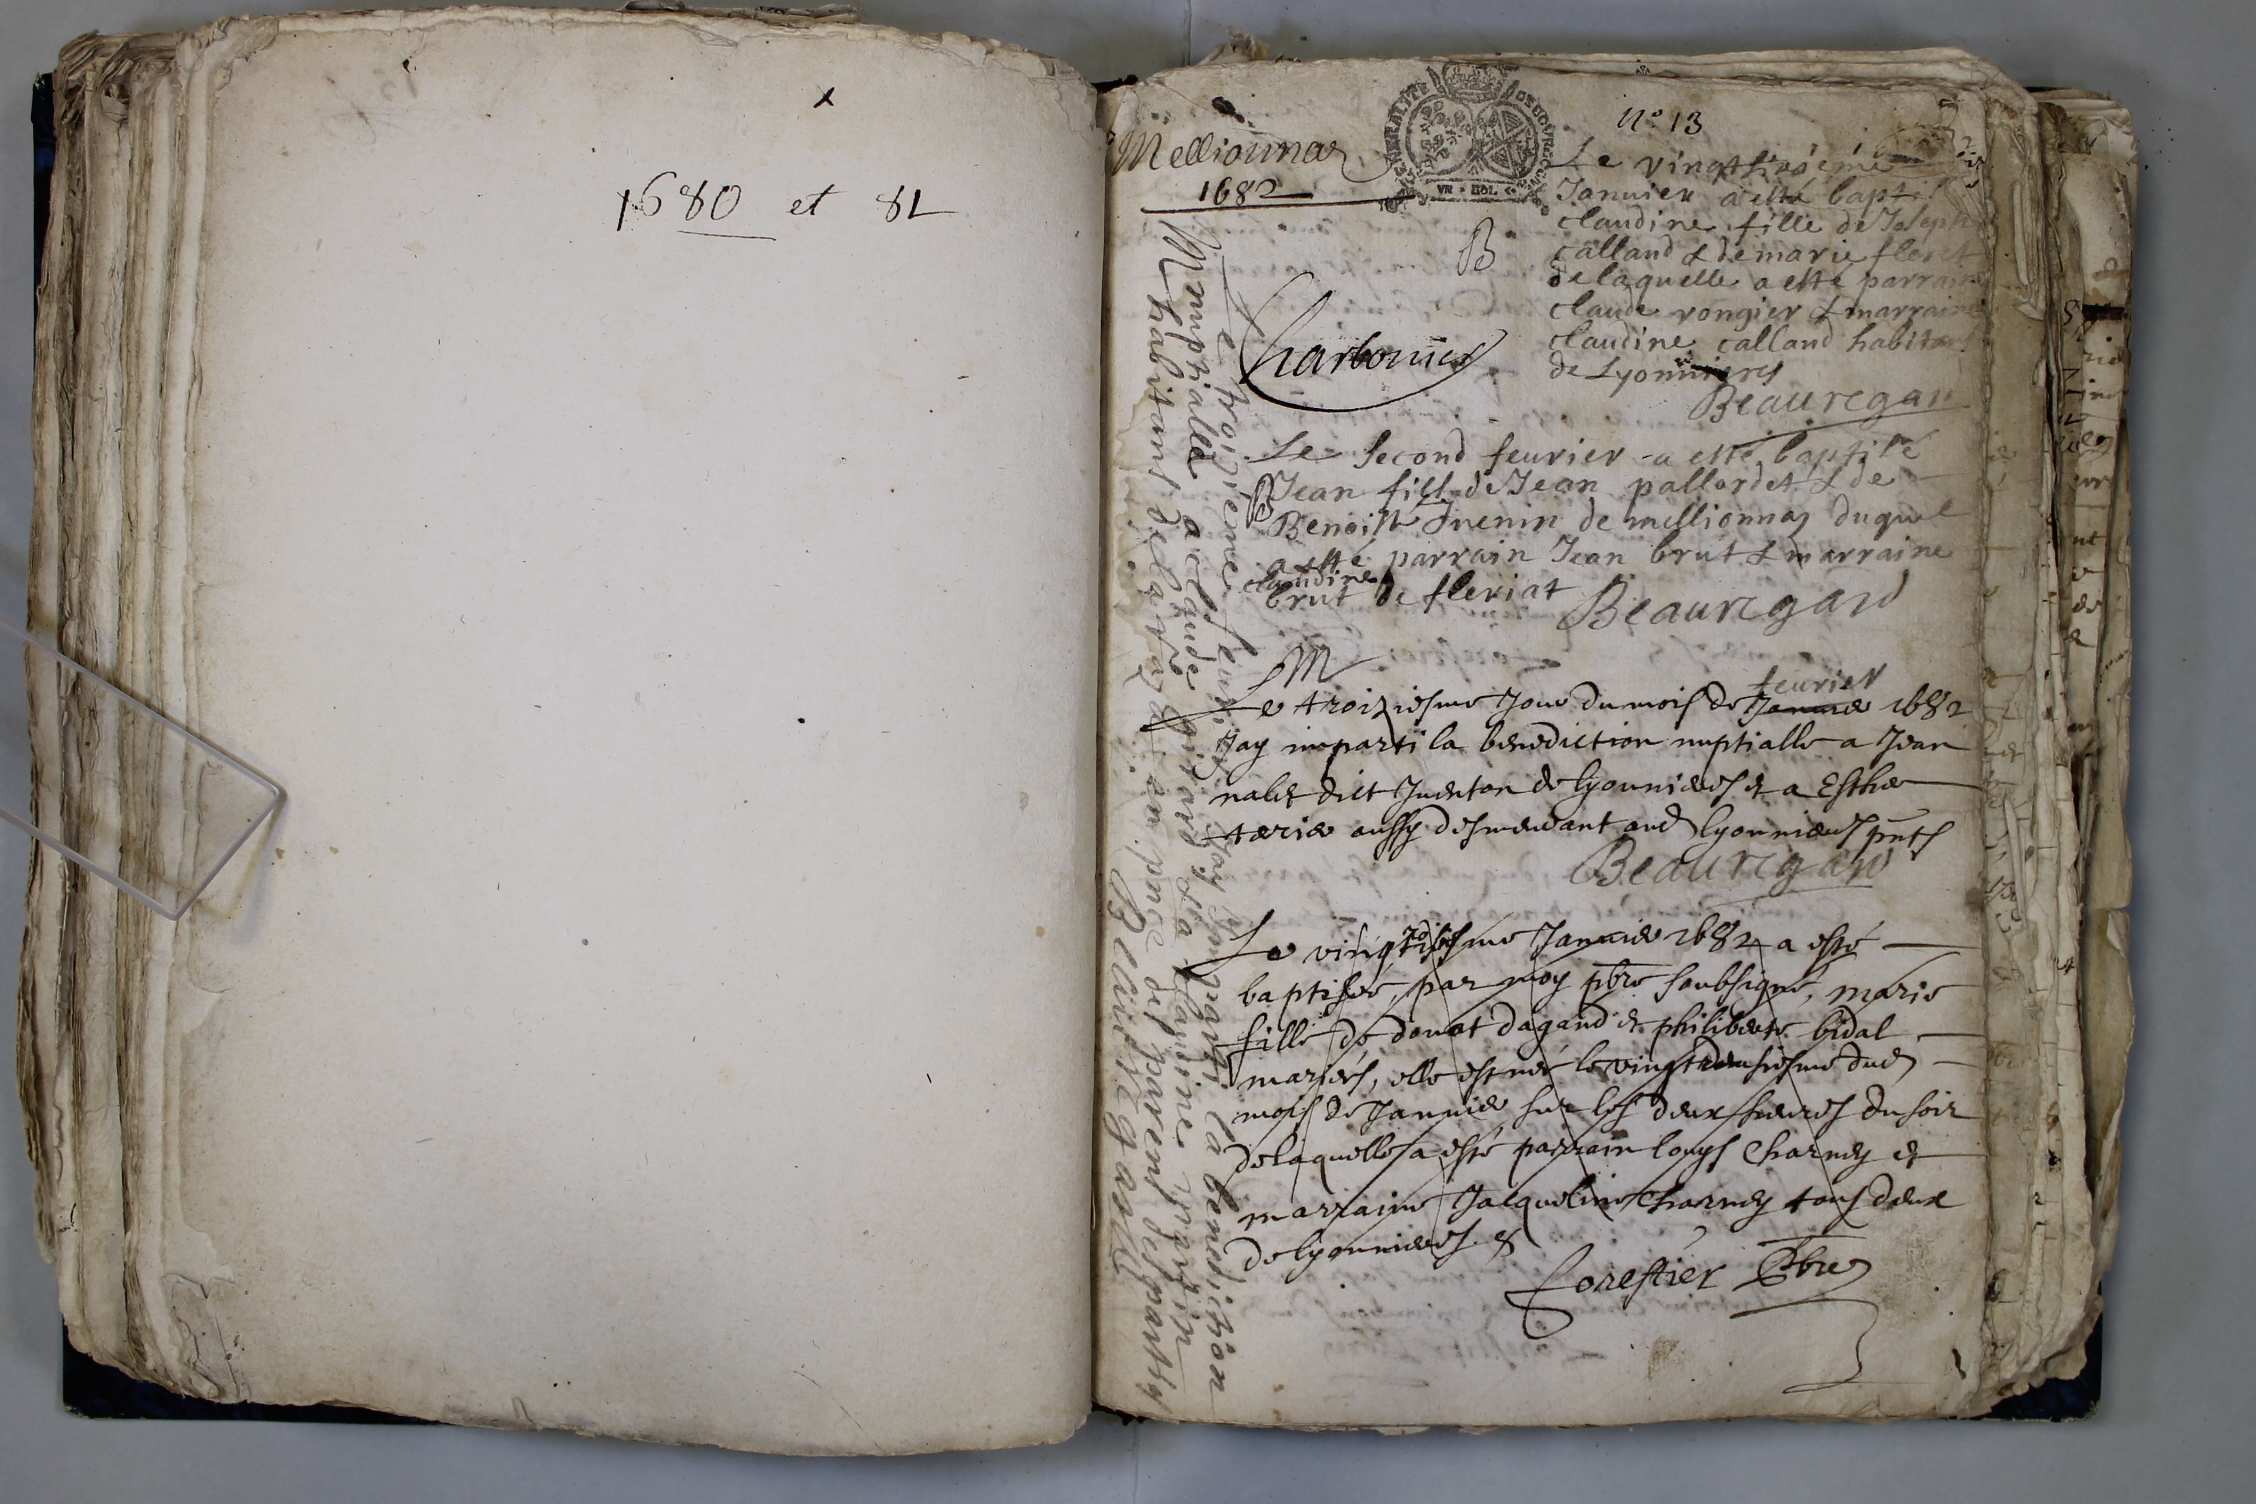 x
1680 et 81
Mellionnas
1682
GENERALITE DE BOURGOGNE
VN · SOL
N° 13
B
Charbonnier
Le vingt
Januier a esté bapti
claudine fille de Joseph
calland & de marie fleret
de laquelle a esté parrain
claude rongier & marraine
claudine calland habitans
de Lyonnieres
Beauregard
Le second feurier a esté baptisé
B
Jean fils de Jean pallordet & de
Benoiste Juenin de mellionnas duquel
a esté parrain Jean brut & marraine
claudine
brut de fleriat Beauregard
M
feurier
Le troiziesme Jour du mois de Januier 1682
Jay imparti la benediction nuptialle a Jean
nalet dict Juenton de lyonnieres et a Esther
terrier aussy demeurant aud lyonnieres pnts
Beauregard
Le vingt iesme Januier 1682 a esté
baptisée, par moy pbre soubsigné, marie
fille de donat dagand et philiberte bidal
mariés, elle est née le vingtdeusiesme dud
mois de Januier sur les deux heures du soir
de laquelle a esté parrain louys Charney et
marraine Jacqueline Charney tous deux
de lyonnieres. &
Forestier Pbre
Le troisieme feurier Jay Imparti la benediction
nuptialle a claude guitard & a claudine
habitans de en pnce de parens des parties
Beauregard